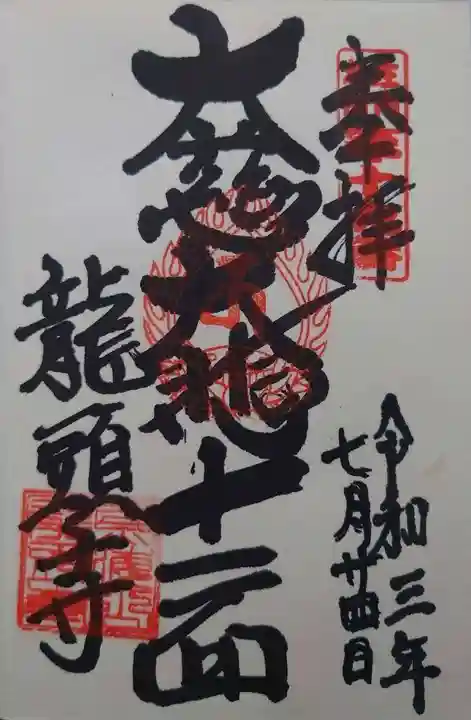 奉拝
令和三年
七月廿四日
大慈大悲十一面
龍頭寺